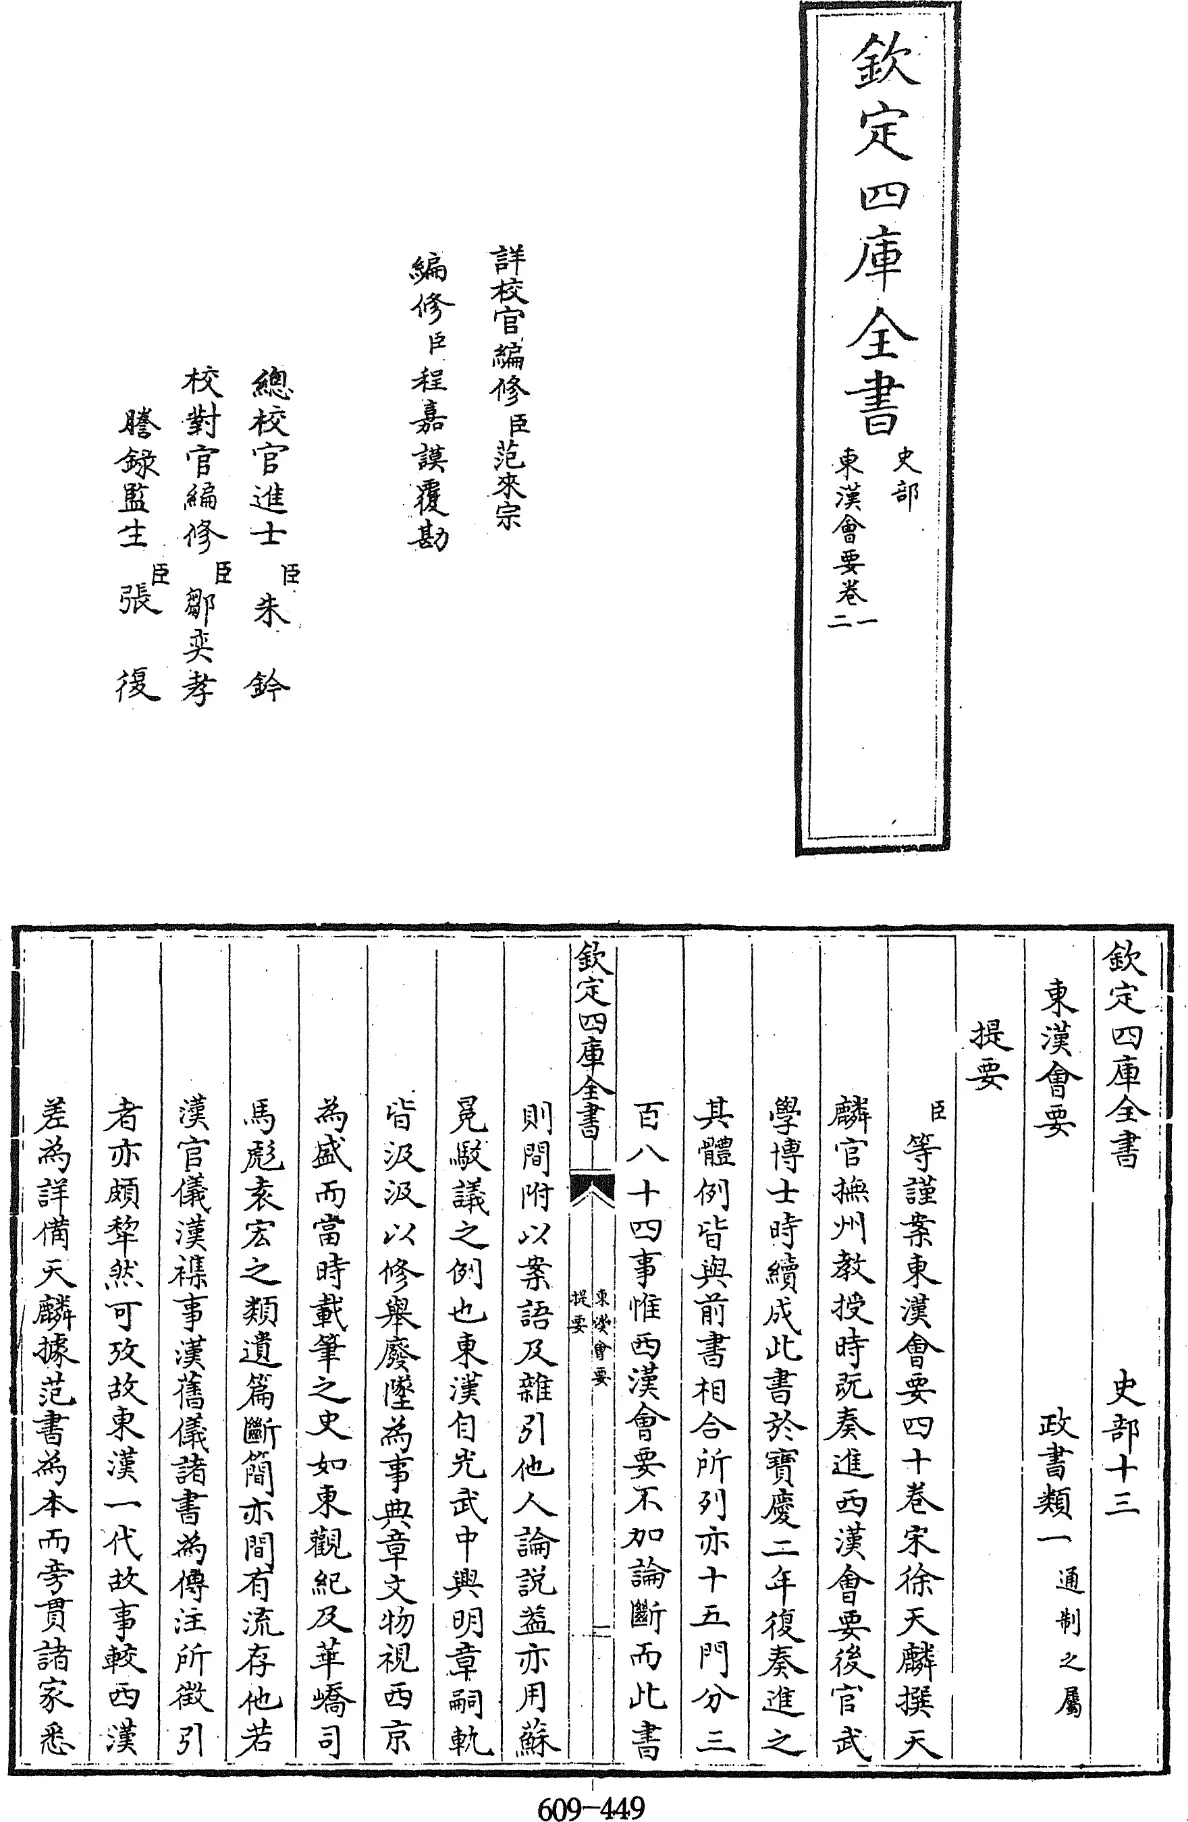 欽定四庫全書
史部
東漢會要卷一
二
詳校官編修臣范來宗
編修臣程嘉謨覆勘
總校官進士臣朱鈐
校對官編修臣鄒奕孝
謄錄監生臣張復
欽定四庫全書 史部十三
東漢會要 政書類一通制之屬
提要
臣等謹案東漢會要四十卷宋徐天麟撰天
麟官撫州教授時既奏進西漢會要後官武
學博士時續成此書於寶慶二年復奏進之
其體例皆與前書相合所列亦十五門分三
百八十四事惟西漢會要不加論斷而此書
欽定四庫全書
東漢會要
提要
一
則間附以案語及雜引他人論説葢亦用蘇
冕駁議之例也東漢自光武中興明章嗣軌
皆汲汲以修舉廢墜為事典章文物視西京
為盛而當時載筆之史如東觀紀及華嶠司
馬彪袁宏之類遺篇斷簡亦間有流存他若
漢官儀漢褋事漢舊儀諸書為傳注所徵引
者亦頗犂然可攷故東漢一代故事較西漢
差為詳備天麟據范書為本而旁貫諸家悉
609-449